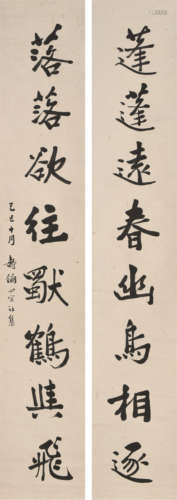 蓬蓬遠春幽鳥相逐
落落欲往獨鶴與飛
己巳十月